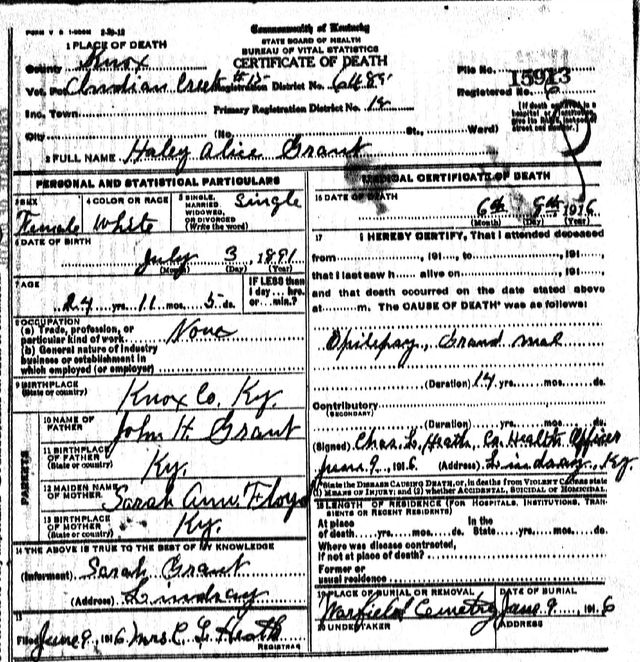 FORM V S 1-500M 2-20-12
Commonwealth of Kentucky
STATE BOARD OF HEALTH
BUREAU OF VITAL STATISTICS
CERTIFICATE OF DEATH
1 PLACE OF DEATH
County Knox
File No. 15913
Vot. Pct. Christian Creek # 15 Registration District No. 6489
Registered No. 6
Inc. Town Primary Registration District No. 12
City (No. St., Ward)
[If death occurred in a hospital or institution give its NAME, instead of street and number.]
2 FULL NAME Haley Alice Grant
PERSONAL AND STATISTICAL PARTICULARS
3 SEX Female
4 COLOR OR RACE White
5 SINGLE, MARRIED, WIDOWED, OR DIVORCED (Write the word) Single
6 DATE OF BIRTH
July 3, 1891
(Month) (Day) (Year)
7 AGE
24 yrs. 11 mos. 5 ds.
IF LESS than 1 day... hrs. or... min.?
8 OCCUPATION
(a) Trade, profession, or particular kind of work None
(b) General nature of industry business or establishment in which employed (or employer)
9 BIRTHPLACE
(State or country) Knox Co, Ky.
PARENTS
10 NAME OF FATHER John H. Grant
11 BIRTHPLACE OF FATHER (State or country) Ky.
12 MAIDEN NAME OF MOTHER Sarah Ann Floyd
13 BIRTHPLACE OF MOTHER (State or country) Ky.
14 THE ABOVE IS TRUE TO THE BEST OF MY KNOWLEDGE
(Informant) Sarah Grant
(Address) Lindsay
15
Filed June 9, 1916 Mrs. C. L. Heath
REGISTRAR
MEDICAL CERTIFICATE OF DEATH
16 DATE OF DEATH
6th 8th, 1916
(Month) (Day) (Year)
17 I HEREBY CERTIFY, That I attended deceased
from, 191..., to, 191...,
that I last saw h... alive on, 191...,
and that death occurred on the date stated above
at...m. The CAUSE OF DEATH* was as follows:
Epilepsy, Grand mal
(Duration) 14 yrs. mos. ds.
Contributory
(SECONDARY)
(Duration) yrs. mos. ds.
(Signed) Chas. L. Heath, Co. Health Officer
June 9, 1916 (Address) Lindsay, Ky
*State the DISEASE CAUSING DEATH, or, in deaths from VIOLENT CAUSES state (1) MEANS OF INJURY; and (2) whether ACCIDENTAL, SUICIDAL OR HOMICIDAL.
18 LENGTH OF RESIDENCE (FOR HOSPITALS, INSTITUTIONS, TRANSIENTS OR RECENT RESIDENTS)
At place of death yrs. mos. ds. In the State yrs. mos. ds.
Where was disease contracted,
If not at place of death?
Former or
usual residence
19 PLACE OF BURIAL OR REMOVAL Warfield Cemetry
DATE OF BURIAL June 9, 1916
20 UNDERTAKER
ADDRESS